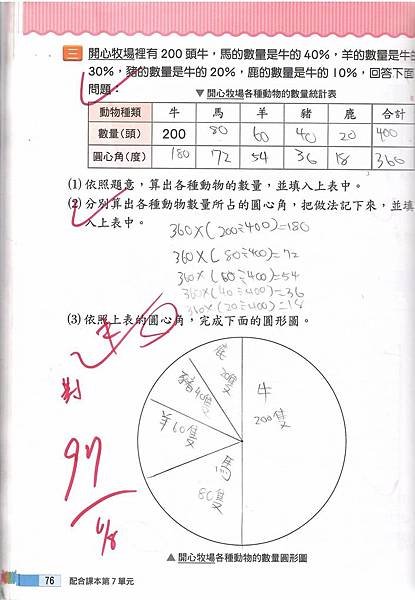 三 開心牧場裡有 200 頭牛,馬的數量是牛的 40%,羊的數量是牛的
30%,豬的數量是牛的 20%,鹿的數量是牛的 10%,回答下面
問題:
▼開心牧場各種動物的數量統計表
動物種類 牛 馬 羊 豬 鹿 合計
數量(頭) 200 80 60 40 20 400
圓心角(度) 180 72 54 36 18 360
(1) 依照題意,算出各種動物的數量,並填入上表中。
(2) 分別算出各種動物數量所占的圓心角,把做法記下來,並填
入上表中。
360×(200÷400)=180
360×(80÷400)=72
360×(60÷400)=54
360×(40÷400)=36
360×(20÷400)=18
(3) 依照上表的圓心角,完成下面的圓形圖。
-5
對
鹿
20隻
豬40隻
牛
200隻
羊60隻
馬
80隻
97
6/8
▲開心牧場各種動物的數量圓形圖
76 配合課本第 7 單元